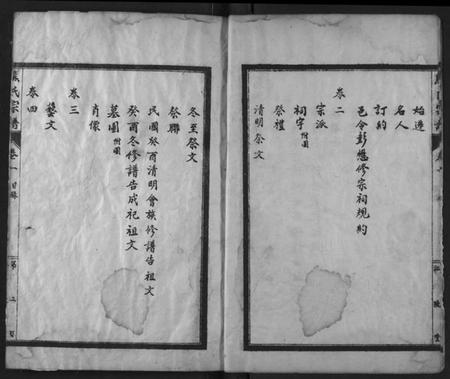 始遷
名人
訂約
邑令彭懋修宗祠規約
卷二
宗派
祠宇附圖
祭禮
清明祭文
冬至祭文
祭聯
民國癸酉清明會族修譜告祖文
癸酉冬修譜告成祀祖文
墓圖附圖
肖像
卷三
藝文
卷四
氏宗譜
卷一
目錄
第二頁